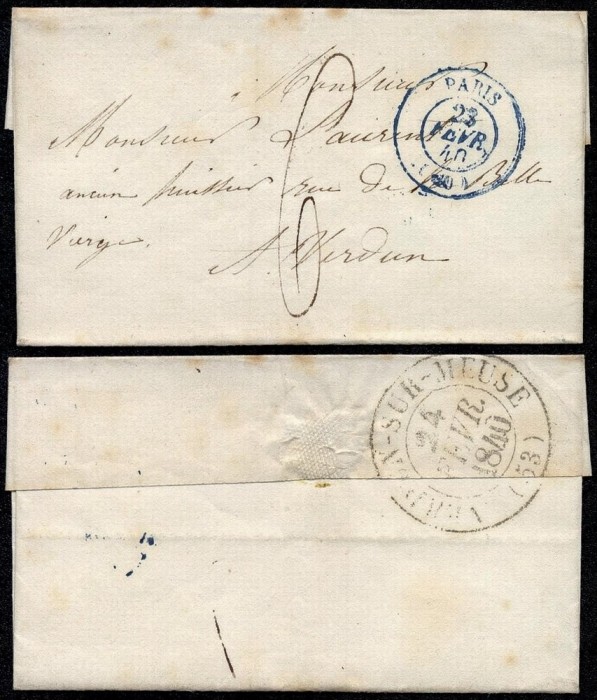 Monsieur
Monsieur Laurent
ancien huissier rue de la Belle
Vierge.
A Verdun
6
PARIS
23
FEVR.
40
(60)
VERDUN-SUR-MEUSE
24
FEVR
1840
(53)